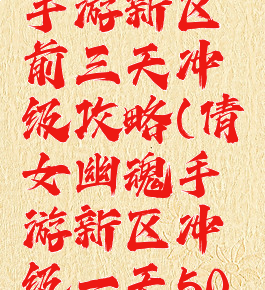 手游新区
前三天冲
级攻略(倩
女幽魂手
游新区冲
级一天50